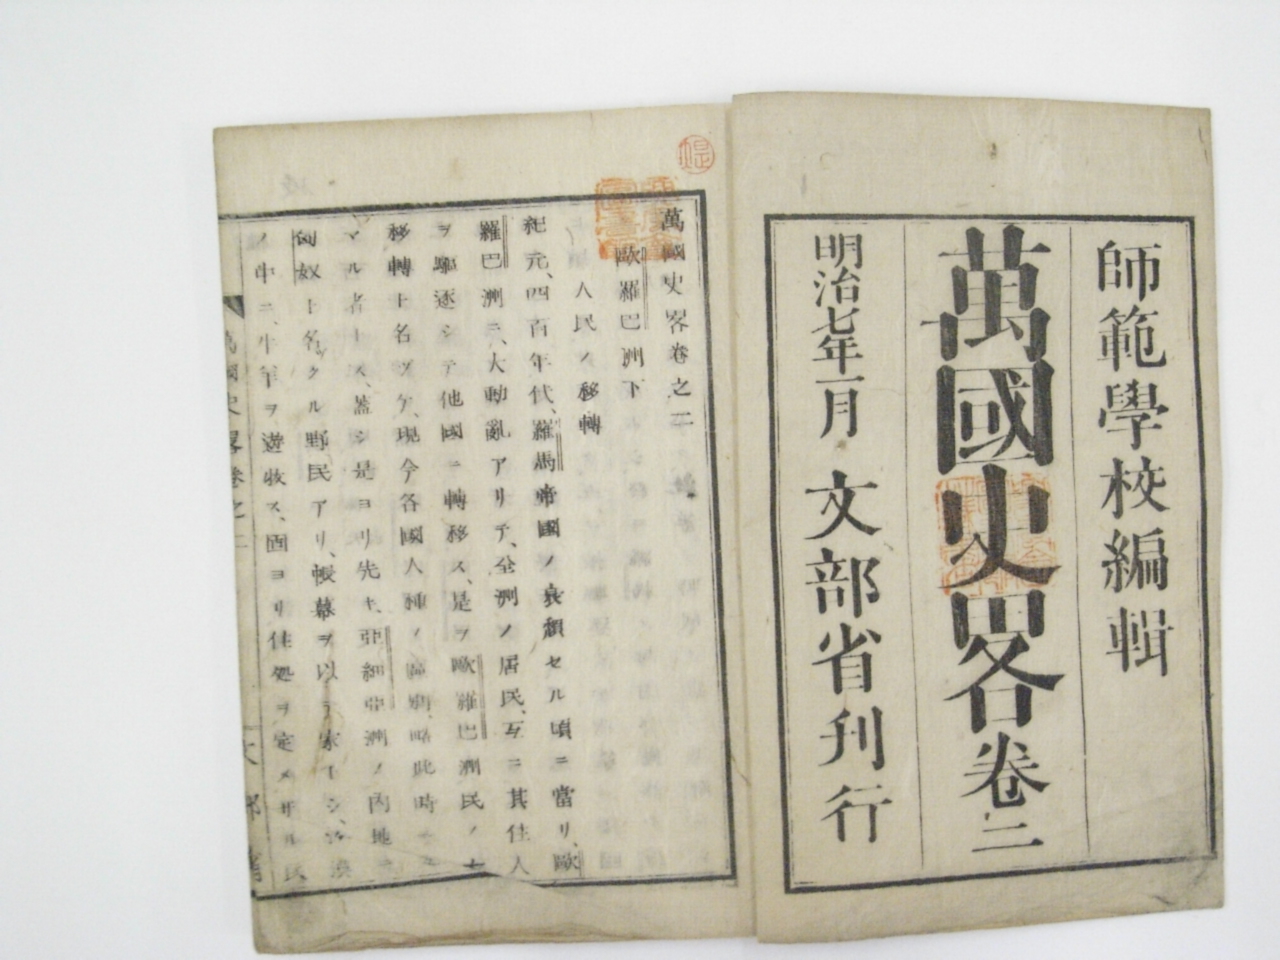 師範學校編輯
萬國史畧卷二
明治七年一月 文部省刊行
萬國史畧卷之二
歐羅巴洲下
人民ノ移轉
紀元、四百年代、羅馬帝國ノ衰頽セル頃ニ當リ、歐
羅巴洲ニ、大動亂アリテ、全洲ノ居民、互ニ其住人
ヲ驅逐シテ他國ニ轉移ス、是ヲ歐羅巴洲民ノ大
移轉ト名ヅケ、現今各國人種ノ區別、略此時ニ
マル者トス、蓋シ是ヨリ先キ、亞細亞洲ノ內地
匈奴ト名クル野民アリ、帳幕ヲ以テ家トシ、漠
ノ中ニ、牛羊ヲ遊牧ス、固ヨリ住処ヲ定メザル民
萬國史畧卷之二 文部省